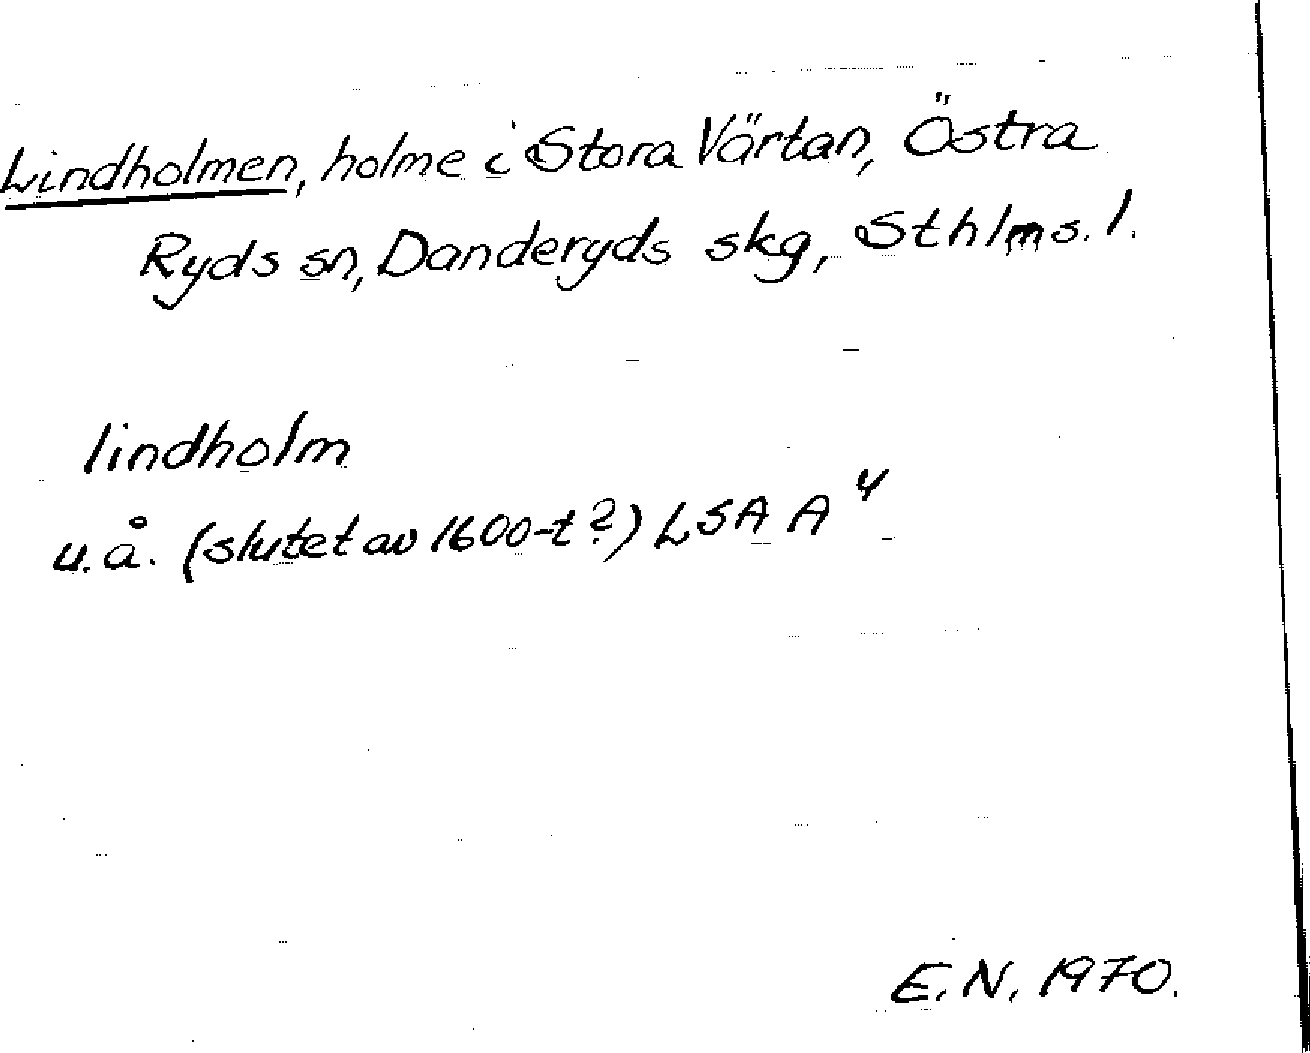 Lindholmen, holme i Stora Värtan, Östra
Ryds sn, Danderyds skg, Sthlms. l.
lindholm
u.å. (slutet av 1600-t?) LSA A⁴
E.N. 1970.